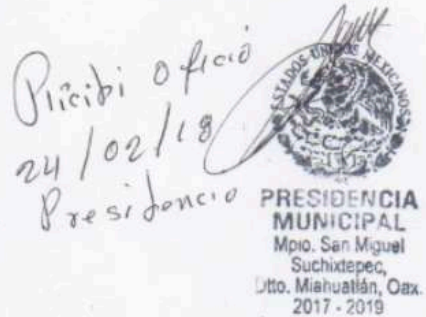 Recibi Oficio
24/02/18
Presidencia
ESTADOS UNIDOS MEXICANOS
PRESIDENCIA
MUNICIPAL
Mpio. San Miguel
Suchixtepec,
Dtto. Miahuatlán, Oax.
2017 - 2019